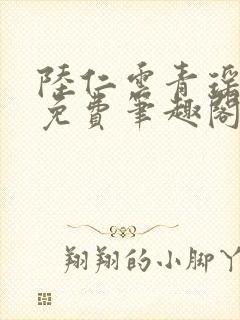 陸仁雲青瑤
免費筆趣閣
翔翔的小脚丫